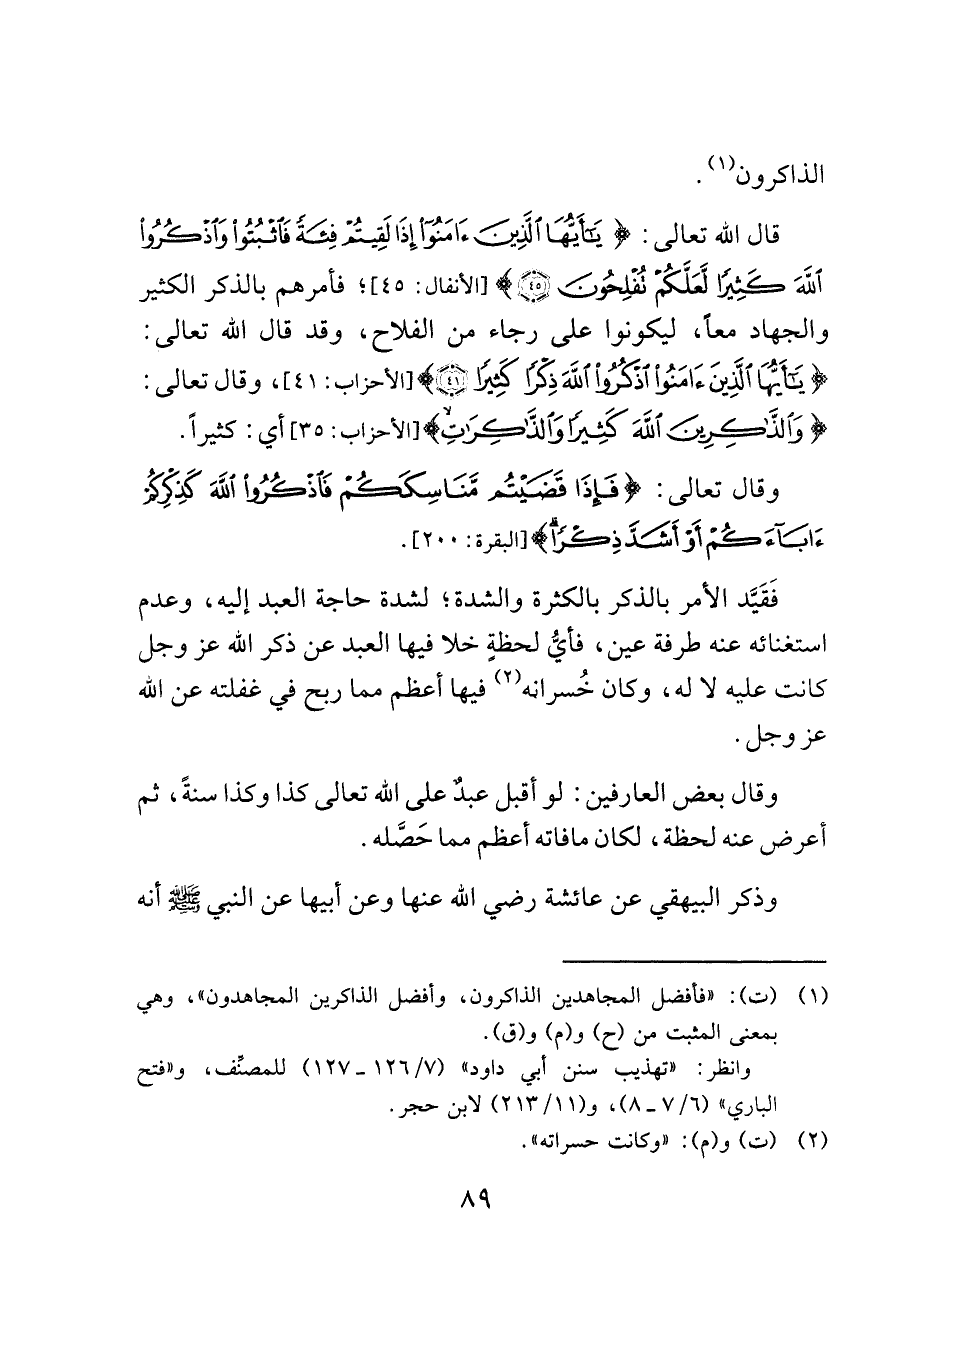 الذاكرون(١).
قال الله تعالى: ﴿ يَٰٓأَيُّهَا ٱلَّذِينَ ءَامَنُوٓا۟ إِذَا لَقِيتُمْ فِئَةً فَٱثْبُتُوا۟ وَٱذْكُرُوا۟
ٱللَّهَ كَثِيرًا لَّعَلَّكُمْ تُفْلِحُونَ ۝٤٥ ﴾ [الأنفال: ٤٥]؛ فأمرهم بالذكر الكثير
والجهاد معاً، ليكونوا على رجاء من الفلاح، وقد قال الله تعالى:
﴿ يَٰٓأَيُّهَا ٱلَّذِينَ ءَامَنُوا۟ ٱذْكُرُوا۟ ٱللَّهَ ذِكْرًا كَثِيرًا ۝٤١ ﴾ [الأحزاب: ٤١]، وقال تعالى:
﴿ وَٱلذَّٰكِرِينَ ٱللَّهَ كَثِيرًا وَٱلذَّٰكِرَٰتِ ﴾ [الأحزاب: ٣٥] أي: كثيراً.
وقال تعالى: ﴿ فَإِذَا قَضَيْتُم مَّنَٰسِكَكُمْ فَٱذْكُرُوا۟ ٱللَّهَ كَذِكْرِكُمْ
ءَابَآءَكُمْ أَوْ أَشَدَّ ذِكْرًا ﴾ [البقرة: ٢٠٠].
فَقَيَّد الأمر بالذكر بالكثرة والشدة؛ لشدة حاجة العبد إليه، وعدم
استغنائه عنه طرفة عين، فأيُّ لحظةٍ خلا فيها العبد عن ذكر الله عز وجل
كانت عليه لا له، وكان خُسرانه(٢) فيها أعظم مما ربح في غفلته عن الله
عز وجل.
وقال بعض العارفين: لو أقبل عبدٌ على الله تعالى كذا وكذا سنةً، ثم
أعرض عنه لحظة، لكان مافاته أعظم مما حَصَّله.
وذكر البيهقي عن عائشة رضي الله عنها وعن أبيها عن النبي ﷺ أنه
(١) (ت): «فأفضل المجاهدين الذاكرون، وأفضل الذاكرين المجاهدون»، وهي
بمعنى المثبت من (ح) و(م) و(ق).
وانظر: «تهذيب سنن أبي داود» (٧/ ١٢٦ ـ ١٢٧) للمصنِّف، و«فتح
الباري» (٦/ ٧ ـ ٨)، و(١١/ ٢١٣) لابن حجر.
(٢) (ت) و(م): «وكانت حسراته».
٨٩